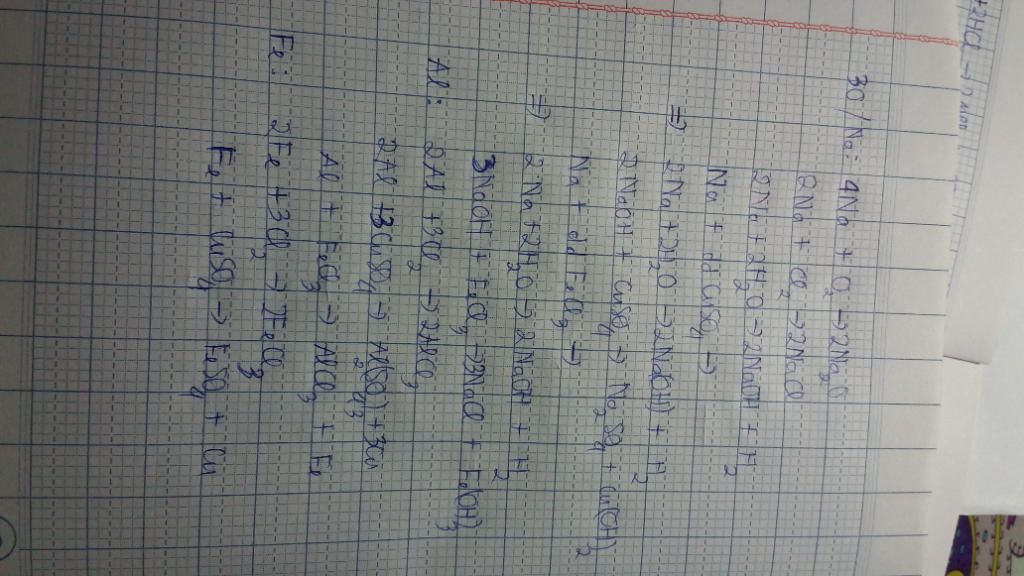 +2HCl →
30/ Na: 4Na + O₂ → 2Na₂O
2Na + Cl₂ → 2NaCl
2Na + 2H₂O → 2NaOH + H₂
Na + dd CuSO₄ →
⇒ 2Na + 2H₂O → 2Na(OH) + H₂
2NaOH + CuSO₄ → Na₂SO₄ + Cu(OH)₂
Na + dd FeCl₃ →
⇒ 2Na + 2H₂O → 2NaOH + H₂
3NaOH + FeCl₃ → 3NaCl + Fe(OH)₃
Al: 2Al + 3Cl₂ → 2AlCl₃
2Al + 3CuSO₄ → Al₂(SO₄)₃ + 3Cu
Al + FeCl₃ → AlCl₃ + Fe
Fe: 2Fe + 3Cl₂ → 2FeCl₃
Fe + CuSO₄ → FeSO₄ + Cu